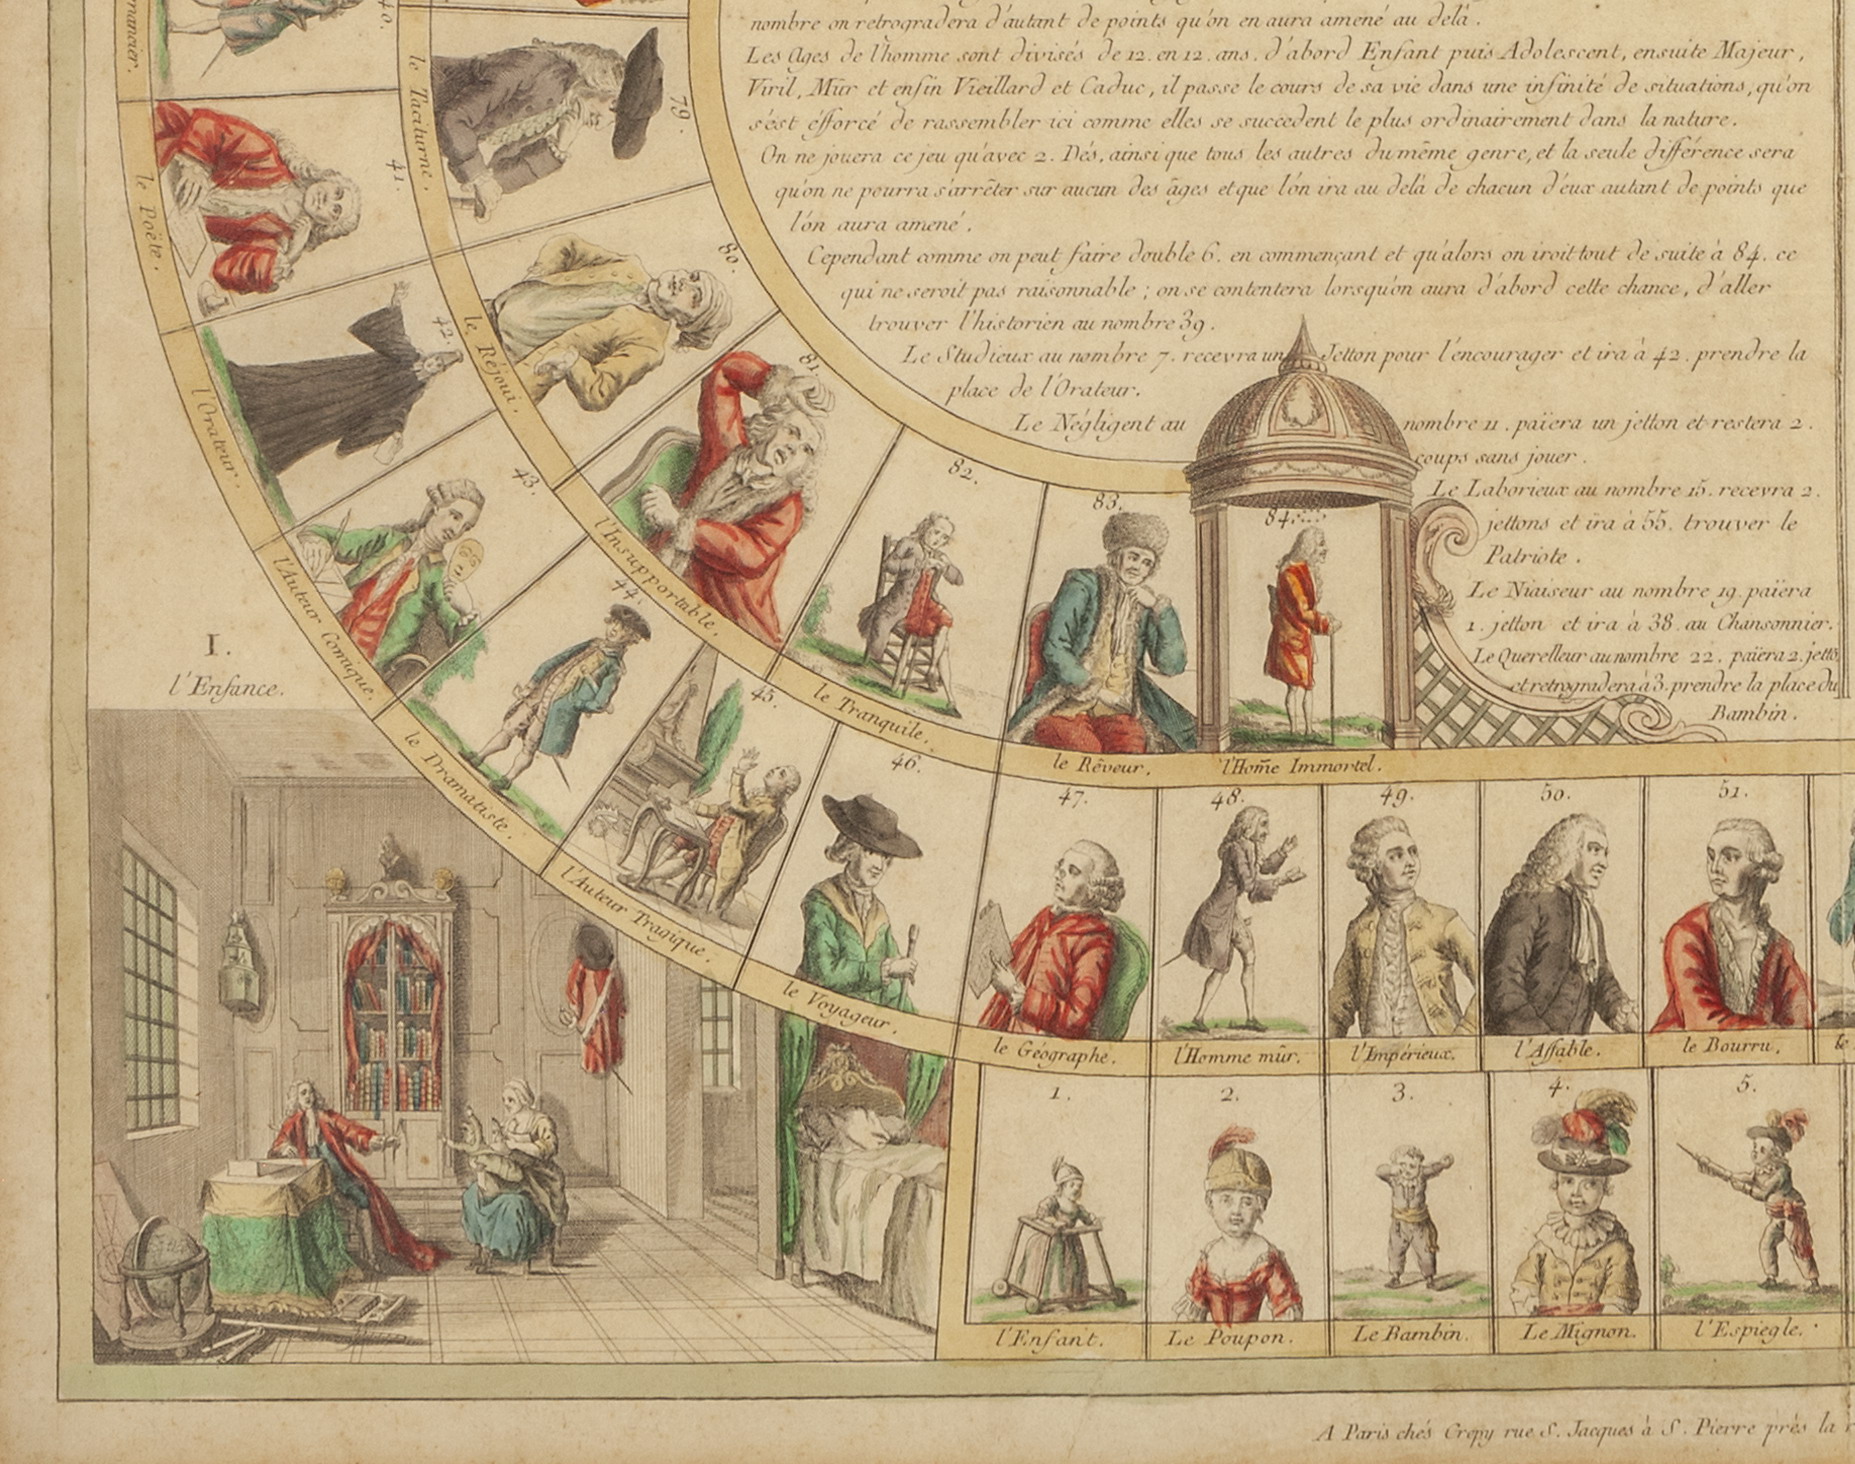 nombre on retrogradera d'autant de points qu'on en aura amené au delà.
Les Ages de l'homme sont divisés de 12. en 12. ans. d'abord Enfant puis Adolescent, ensuite Majeur,
Viril, Mûr et enfin Vieillard et Caduc, il passe le cours de sa vie dans une infinité de situations, qu'on
s'est éfforcé de rassembler ici comme elles se succedent le plus ordinairement dans la nature.
On ne jouera ce jeu qu'avec 2. Dés, ainsi que tous les autres du même genre, et la seule différence sera
qu'on ne pourra s'arrêter sur aucun des âges et que l'on ira au delà de chacun d'eux autant de points que
l'ón aura amené.
Cependant comme on peut faire double 6. en commençant et qu'alors on iroit tout de suite à 84. ce
qui ne seroit pas raisonnable ; on se contentera lorsqu'on aura d'abord cette chance, d'aller
trouver l'historien au nombre 39.
Le Studieux au nombre 7. recevra un Jetton pour l'encourager et ira à 42. prendre la
place de l'Orateur.
Le Négligent au nombre 11. païera un jetton et restera 2.
coups sans jouer.
Le Laborieux au nombre 15. recevra 2.
jettons et ira à 55. trouver le
Patriote.
Le Niaiseur au nombre 19. païera
1. jetton et ira à 38. au Chansonnier.
Le Querelleur au nombre 22. païera 2. jett
et retrogradera à 3. prendre la place du
Bambin.
40.
79.
le Taciturne.
41.
le Poëte.
80.
le Réjoui.
42.
l'Orateur.
81.
l'Insupportable.
43.
l'Auteur Comique.
82.
le Tranquile.
83.
le Rêveur.
84.
l'Hom̃e Immortel.
44.
le Dramatiste.
45.
l'Auteur Tragique.
46.
le Voyageur.
47.
le Géographe.
48.
l'Homme mûr.
49.
l'Impérieux.
50.
l'Affable.
51.
le Bourru.
le
I.
l'Enfance.
1.
l'Enfant.
2.
Le Poupon.
3.
Le Bambin.
4.
Le Mignon.
5.
l'Espiegle.
A Paris chés Crepy rue S. Jacques à S. Pierre près la